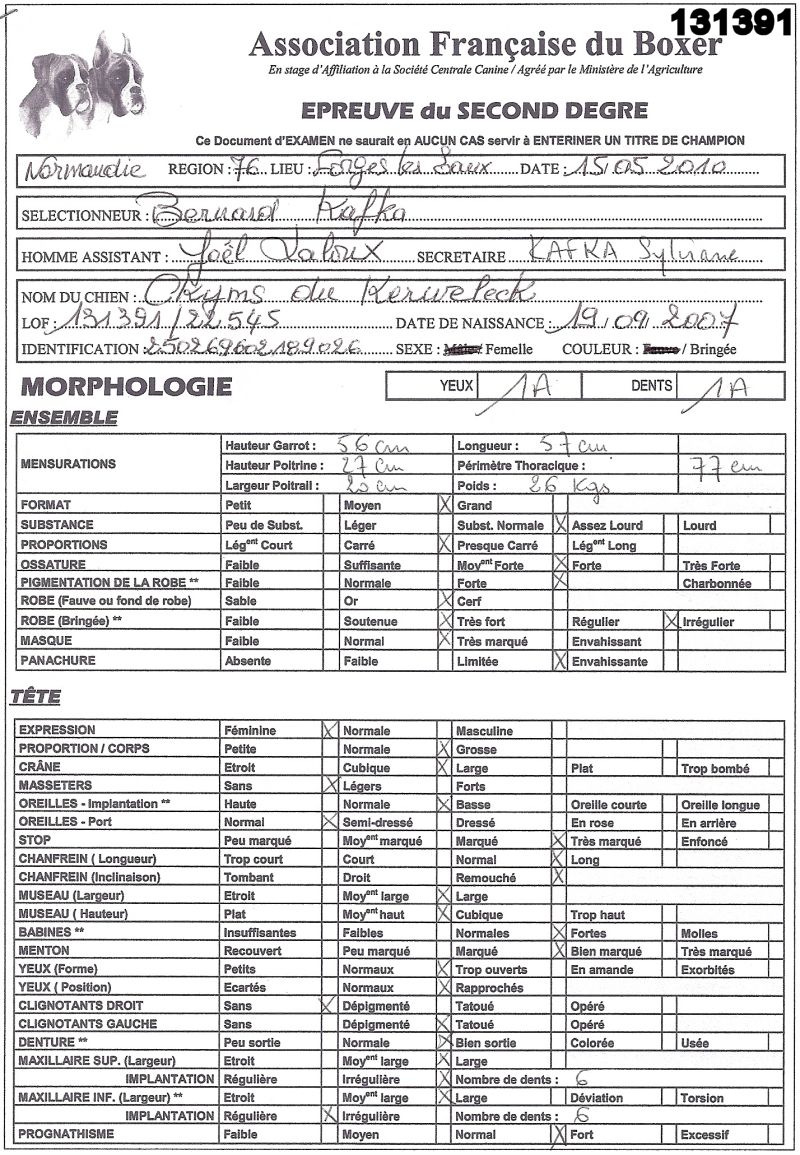 131391
Association Française du Boxer
En stage d'Affiliation à la Société Centrale Canine / Agréé par le Ministère de l'Agriculture
EPREUVE du SECOND DEGRE
Ce Document d'EXAMEN ne saurait en AUCUN CAS servir à ENTERINER UN TITRE DE CHAMPION
Normandie REGION : 76 LIEU : Forges les Eaux DATE : 15 05 2010
SELECTIONNEUR : Bernard Kafka
HOMME ASSISTANT : Joël Valoux SECRETAIRE KAFKA Sylviane
NOM DU CHIEN : Ckyms du Kerweleck
LOF : 131391/22.545 DATE DE NAISSANCE : 19/09/2007
IDENTIFICATION : 250269602189026 SEXE : Mâle / Femelle COULEUR : Fauve / Bringée
MORPHOLOGIE YEUX 1A DENTS 1A
ENSEMBLE
MENSURATIONS Hauteur Garrot : 56 cm Longueur : 57 cm
Hauteur Poitrine : 27 cm Périmètre Thoracique : 77 cm
Largeur Poitrail : 20 cm Poids : 26 Kgs
FORMAT Petit Moyen X Grand
SUBSTANCE Peu de Subst. Léger Subst. Normale X Assez Lourd Lourd
PROPORTIONS Légent Court Carré X Presque Carré Légent Long
OSSATURE Faible Suffisante Moyent Forte X Forte Très Forte
PIGMENTATION DE LA ROBE ** Faible Normale Forte X Charbonnée
ROBE (Fauve ou fond de robe) Sable Or X Cerf
ROBE (Bringée) ** Faible Soutenue X Très fort Régulier X Irrégulier
MASQUE Faible Normal X Très marqué Envahissant
PANACHURE Absente Faible Limitée X Envahissante
TÊTE
EXPRESSION Féminine X Normale Masculine
PROPORTION / CORPS Petite Normale X Grosse
CRÂNE Etroit Cubique X Large Plat Trop bombé
MASSETERS Sans X Légers Forts
OREILLES - Implantation ** Haute Normale X Basse Oreille courte Oreille longue
OREILLES - Port Normal X Semi-dressé Dressé En rose En arrière
STOP Peu marqué Moyent marqué Marqué X Très marqué Enfoncé
CHANFREIN ( Longueur) Trop court Court Normal X Long
CHANFREIN (Inclinaison) Tombant Droit Remouché X
MUSEAU (Largeur) Etroit Moyent large X Large
MUSEAU ( Hauteur) Plat Moyent haut X Cubique Trop haut
BABINES ** Insuffisantes Faibles Normales X Fortes Molles
MENTON Recouvert Peu marqué Marqué X Bien marqué Très marqué
YEUX (Forme) Petits Normaux X Trop ouverts En amande Exorbités
YEUX ( Position) Ecartés Normaux X Rapprochés
CLIGNOTANTS DROIT Sans X Dépigmenté Tatoué Opéré
CLIGNOTANTS GAUCHE Sans Dépigmenté X Tatoué Opéré
DENTURE ** Peu sortie Normale X Bien sortie Colorée Usée
MAXILLAIRE SUP. (Largeur) Etroit Moyent large X Large
IMPLANTATION Régulière Irrégulière X Nombre de dents : 6
MAXILLAIRE INF. (Largeur) ** Etroit Moyent large X Large Déviation Torsion
IMPLANTATION Régulière X Irrégulière Nombre de dents : 6
PROGNATHISME Faible Moyen Normal X Fort Excessif